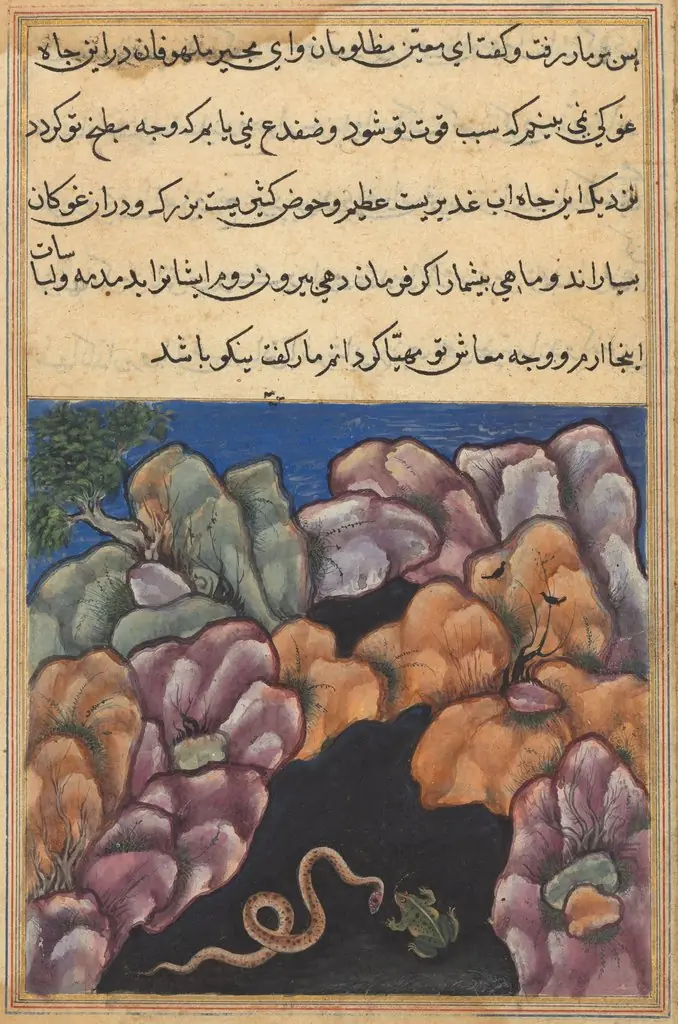 پس بر مار رفت و گفت ای معین مظلومان و ای مجیر ملهوفان در این جاه
غوکی نمی بینم که سبب قوت تو شود و ضفدع نمی یابم که وجه مطبخ تو کردد
نزدیک این جاه اب غدیریست عظیم و حوض کثیریست بزرک و در ان غوکان
بسیار اند و ماهی بیشمار اکر فرمان دهی بیرون روم ایشانرا بدمدمه و لباسات
اینجا ارم و وجه معاش تو مهیّا کردانم مار کفت نیکو باشد